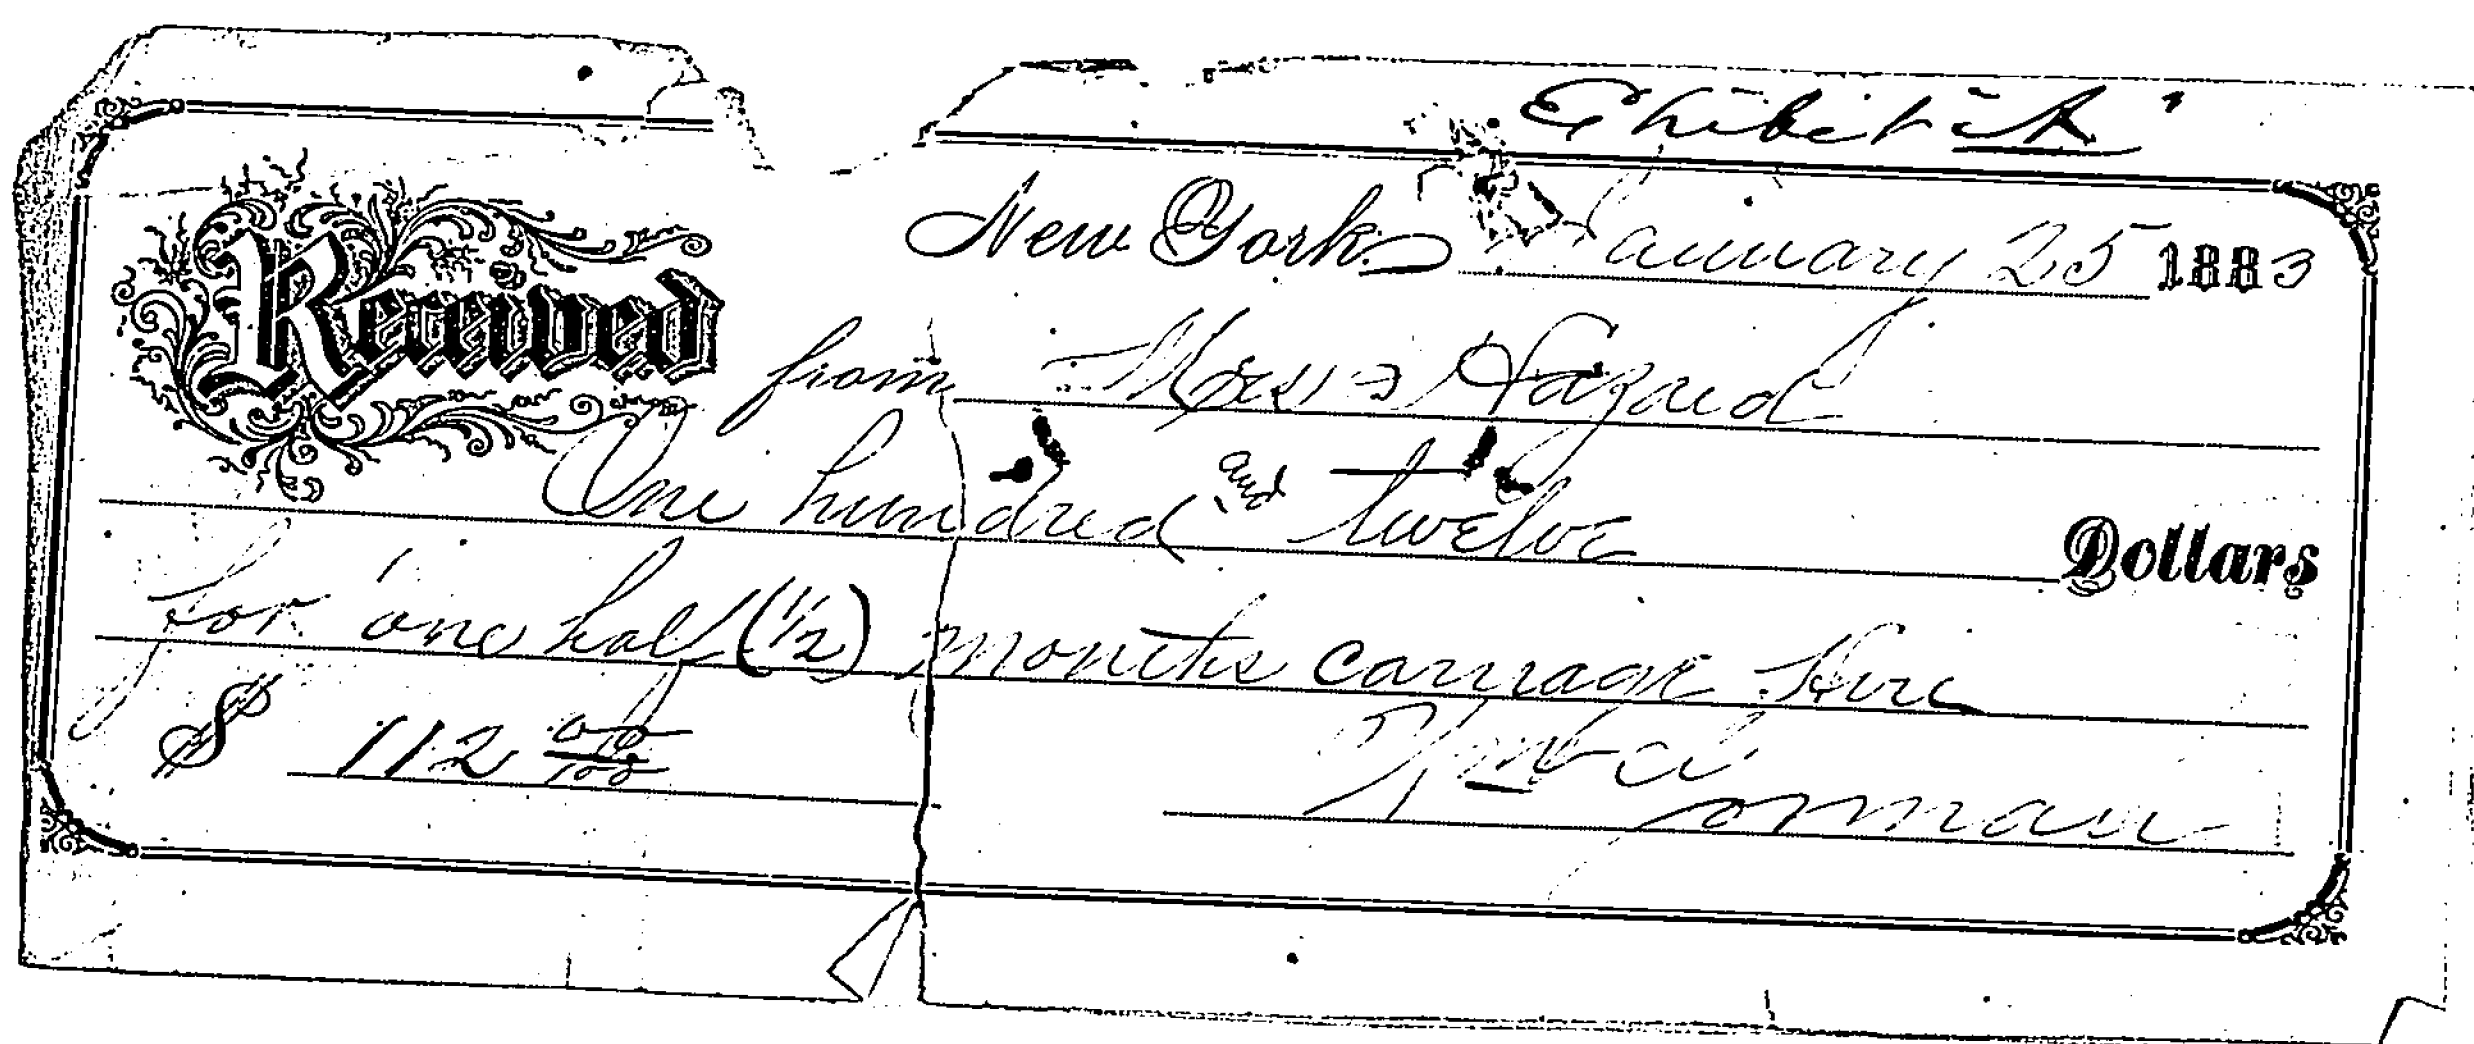 Exhibit "A"
New York, January 25 1883
Received from Hazard
One hundred and twelve Dollars
for one half (1/2) months carriage hire
$ 112 00/100